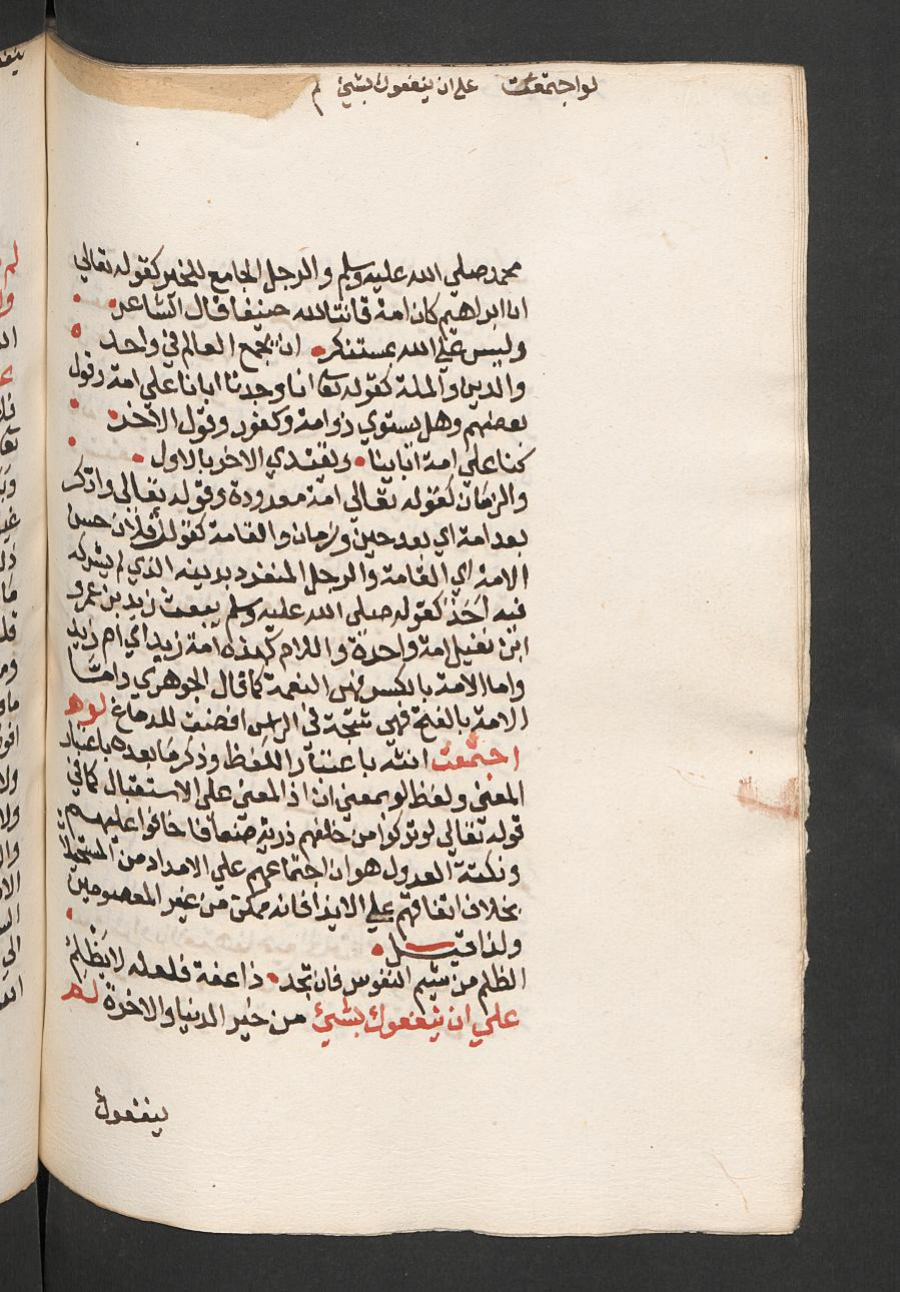 لو اجتمعت على ان ينفعوك بشئ لم
محمد صلي الله عليه وسلم والرجل الجامع للخير كقوله تعالي
ان ابراهيم كان امة قانتا لله حنيفا قال الشاعر
وليس علي الله بمستنكر ان يجمع العالم في واحد
والدين والملة كقوله تعا انا وجدنا ابانا علي امة وقول
بعضهم وهل يستوي ذو امة وكفور وقول الاخر
كنا علي امة ابائنا ويقتدي الاخر بالاول
والزمان كقوله تعالي امة معدودة وقوله تعالي وادكر
بعد امة اي بعد حين وزمان والقامة كقولك فلان حسن
الامة اي القامة والرجل المنفرد بدينه الذي لم يشركه
فيه احد كقوله صلي الله عليه وسلم يبعث زيد بن عمرو
ابن نفيل امة واحدة والام كهذه امة زيد اي ام زيد
واما الامة بالكسر فهي النعمة كما قال الجوهري واما
الامة بالفتح فهي شجة في الراس افضت للدماغ لو
اجتمعت انثه باعتبار اللفظ وذكر ما بعده باعتبار
المعني ولفظ لو بمعني ان اذ المعني علي الاستقبال كما في
قوله تعالي لو تركوا من خلفهم ذرية ضعافا خافوا عليهم
ونكتة العدول هو ان اجتماعهم علي الامداد من المستحيل
بخلاف اتفاقهم علي الايذا فانه ممكن من غير المعصومين
ولذا قيل
الظلم من شيم النفوس فان تجد ذا عفة فلعله لا يظلم
علي ان ينفعوك بشئ من خير الدنيا والاخرة لم
ينفعوك